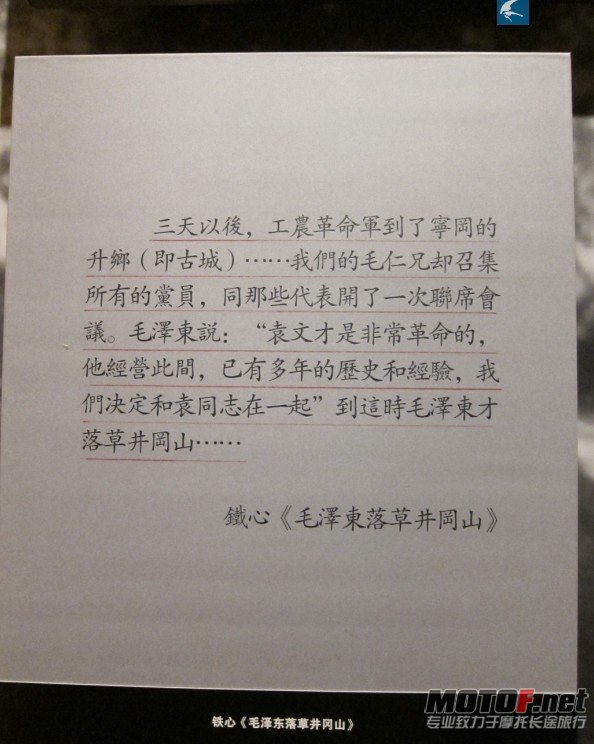 三天以後，工農革命軍到了寧岡的
升鄉（即古城）……我們的毛仁兄却召集
所有的黨員，同那些代表開了一次聯席會
議。毛澤東説：“袁文才是非常革命的，
他經營此間，已有多年的歷史和經驗，我
們决定和袁同志在一起”到這時毛澤東才
落草井岡山……
鐵心《毛澤東落草井岡山》
铁心《毛泽东落草井冈山》
MOTOF.net
专业致力于摩托长途旅行